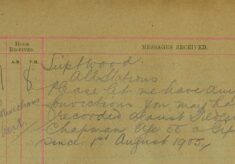 HOUR
RECEIVED.
MESSAGES RECEIVED.
A.M. P.M.
8
All Stations
Please let me have any
convictions you may have
recorded against George
Chapman age 66 a
since 1st August 1905.